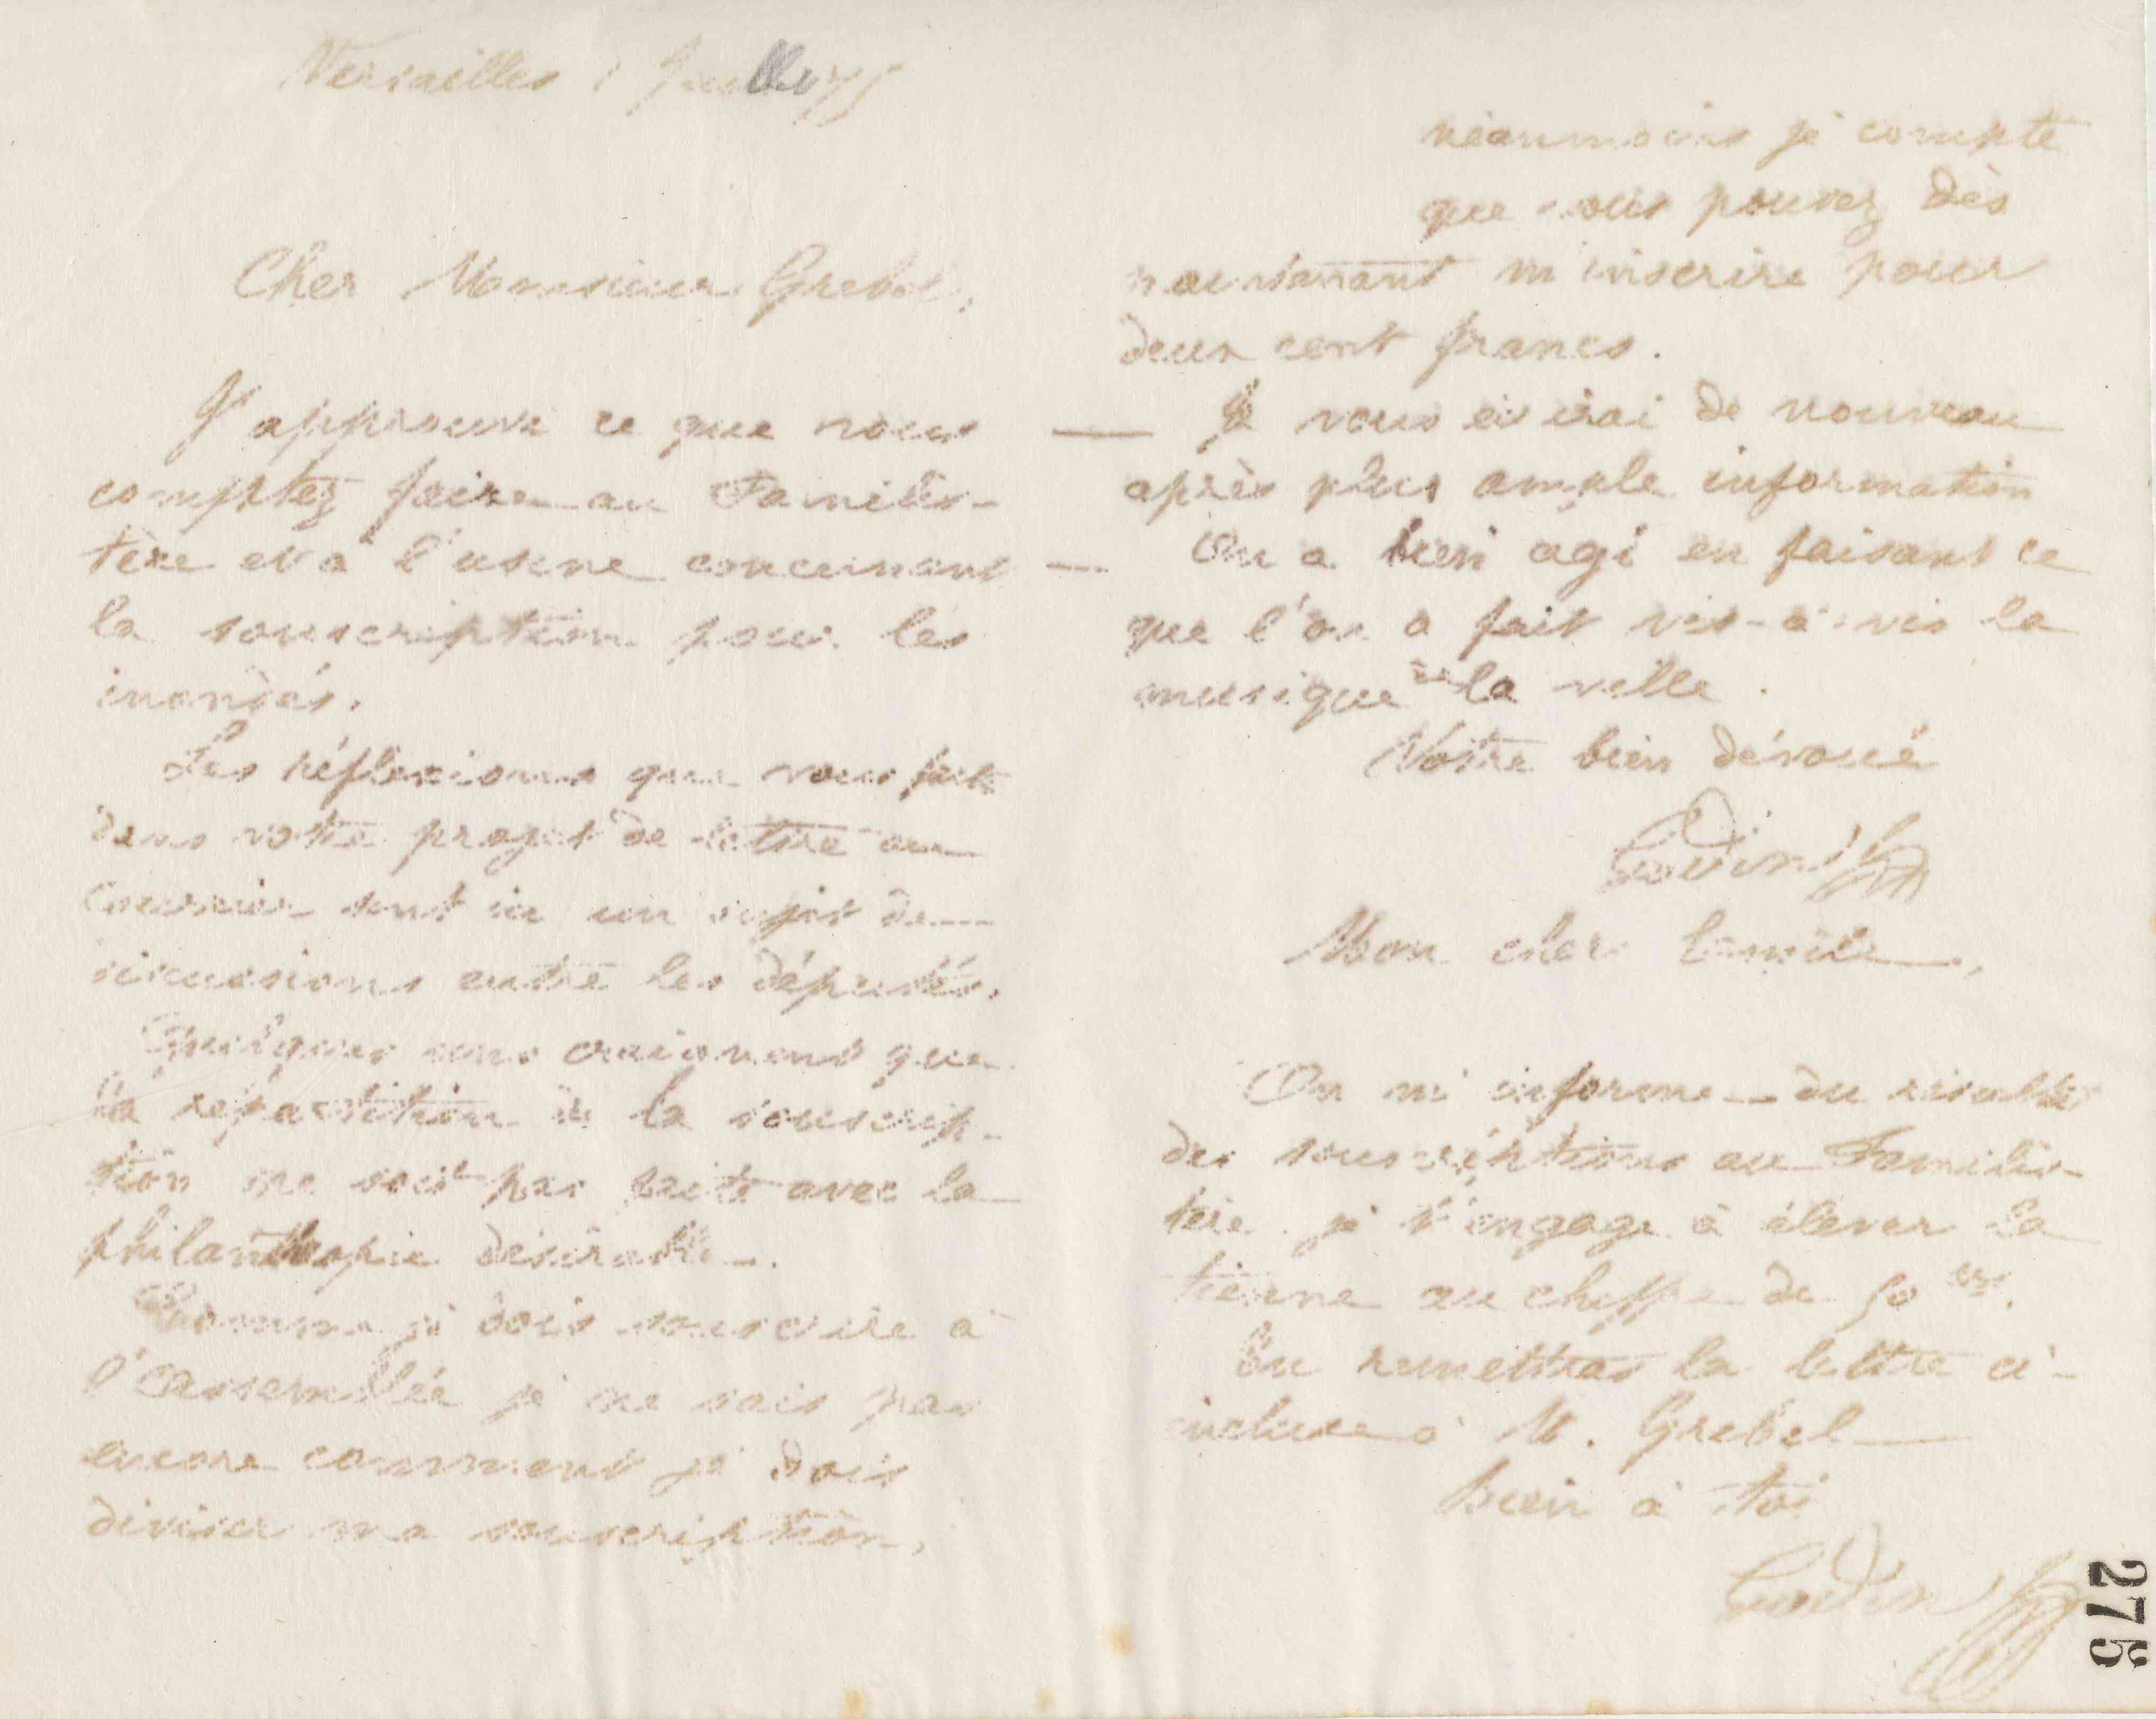 Versailles 1 Juillet 75
Cher Monsieur Grebel,
J'approuve ce que vous
comptez faire au Familis-
tère et à l'usine concernant
la souscription pour les
inondés.
Les réflexions que vous faites
dans votre projet de lettre au
Courrier sont ici un sujet de
discussions entre les députés.
Quelques uns craignent que
la répartition de la souscrip-
tion ne soit pas faite avec la
philanthropie désirable.
Comme je dois souscrire à
l'Assemblée je ne sais pas
encore comment je dois
diviser ma souscription,
néanmoins je compte
que vous pouvez dès
maintenant m'inscrire pour
deux cent francs.
— Je vous écrirai de nouveau
après plus ample information
— On a bien agi en faisant ce
que l'on a fait vis-à-vis la
musique de la ville.
Votre bien dévoué
Godin
Mon cher Emile,
On m'informe du résultat
des souscriptions au Familis-
tère. je t'engage à élever la
tienne au chiffre de 50
Tu remettras la lettre ci-
incluse à M. Grebel
bien à toi
Godin
275